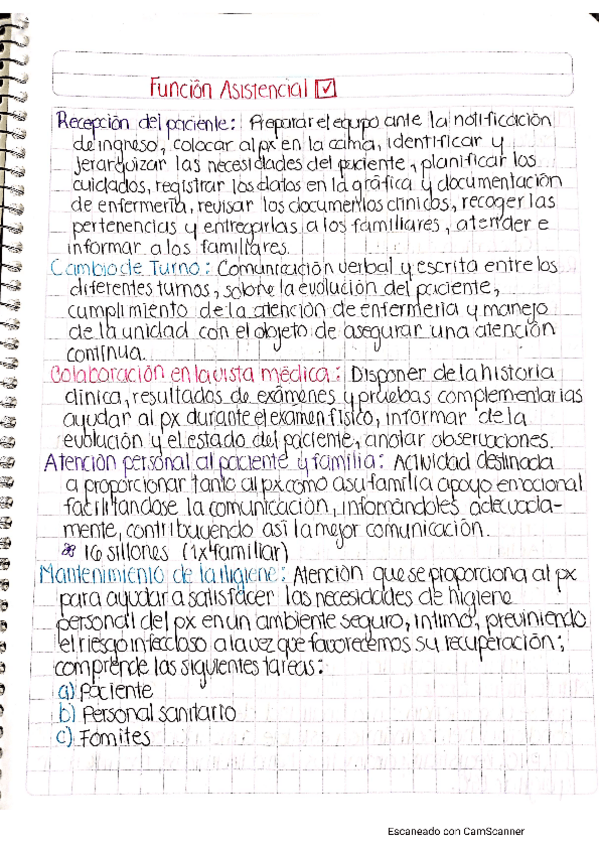 Función Asistencial
Recepción del paciente: Preparar el equipo ante la notificación
de ingreso, colocar al px en la cama, identificar y
jerarquizar las necesidades del paciente, planificar los
cuidados, registrar los datos en la gráfica y documentación
de enfermería, revisar los documentos clínicos, recoger las
pertenencias y entregarlas a los familiares, atender e
informar a los familiares.
Cambio de Turno: Comunicación verbal y escrita entre los
diferentes turnos, sobre la evolución del paciente,
cumplimiento de la atención de enfermería y manejo
de la unidad con el objeto de asegurar una atención
continua.
Colaboración en la vista médica: Disponer de la historia
clínica, resultados de exámenes y pruebas complementarias
ayudar al px durante el examen físico, informar de la
evolución y el estado del paciente, anotar observaciones.
Atención personal al paciente y familia: Actividad destinada
a proporcionar tanto al px como a su familia apoyo emocional
facilitandose la comunicación, informándoles adecuada-
mente, contribuyendo así la mejor comunicación.
16 sillones (1x4familiar)
Mantenimiento de la Higiene: Atención que se proporciona al px
para ayudar a satisfacer las necesidades de higiene
personal del px en un ambiente seguro, íntimo, previniendo
el riesgo infeccioso a la vez que favorecemos su recuperación;
comprende las siguientes tareas:
a) Paciente
b) Personal sanitario
c) Fómites
Escaneado con CamScanner